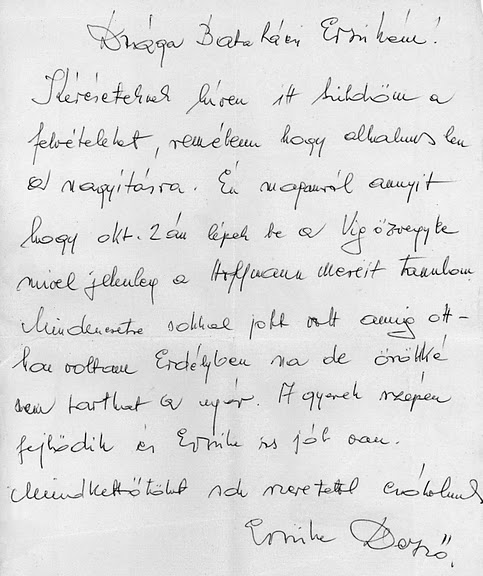 Drága Bataházi Ersikém!
Kéréseteknek híven itt küldöm a
felvételeket, remélem hogy alkalmas lesz
a nagyításra. Én magamról annyit
hogy okt. 2án lépek be a Víg özvegybe
mivel jelenleg a Hoffmann meséit tanulom
Mindenesetre sokkal jobb volt amíg ott-
hon voltam Erdélyben na de örökké
nem tarthat a nyár. A gyerek szépen
fejlődik és Ersike is jól van.
Mindkettőtöket sok szeretettel csókolunk
Ersike Dezső.